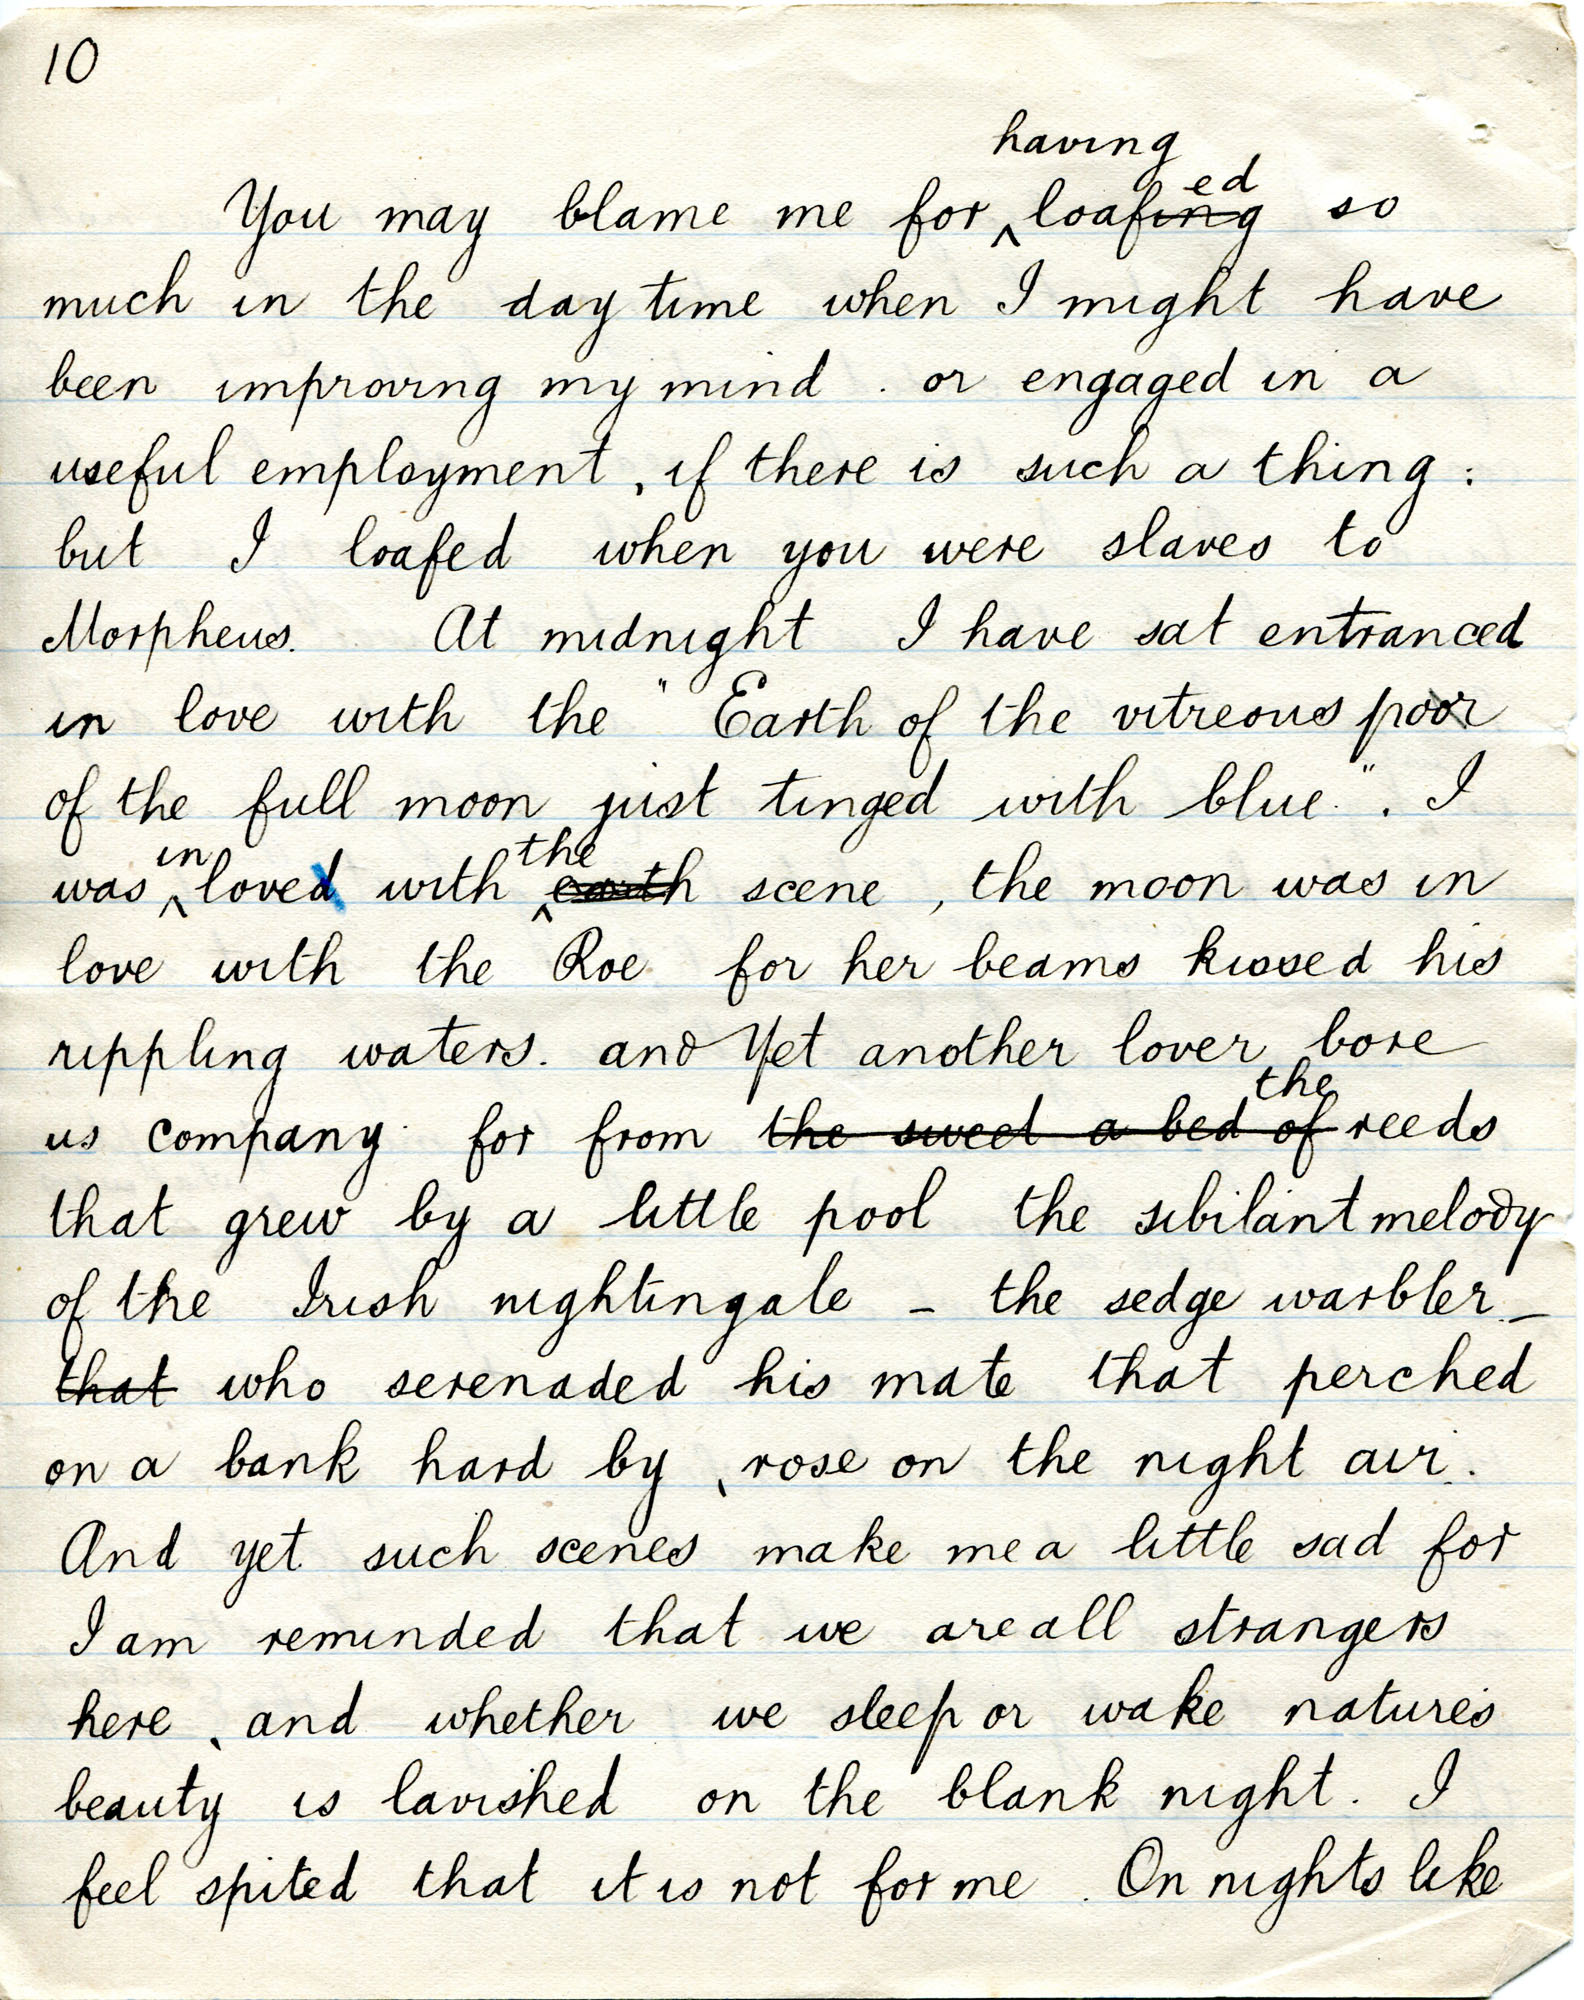 10
having
You may blame me for ‸ loafing ed so
much in the day time when I might have
been improving my mind . or engaged in a
useful employment , if there is such a thing :
but I loafed when you were slaves to
Morpheus. At midnight I have sat entranced
in love with the " Earth of the vitreous poor
of the full moon just tinged with blue " . I
was ‸ in loved with ‸ the earth scene , the moon was in
love with the Roe for her beams kissed his
rippling waters. and Yet another lover bore
us company for from the sweet a bed of the reeds
that grew by a little pool the sibilant melody
of the Irish nightingale – the sedge warbler –
that who serenaded his mate that perched
on a bank hard by , rose on the night air .
And yet such scenes make me a little sad for
I am reminded that we are all strangers
here , and whether we sleep or wake nature's
beauty is lavished on the blank night . I
feel spited that it is not for me . On nights like